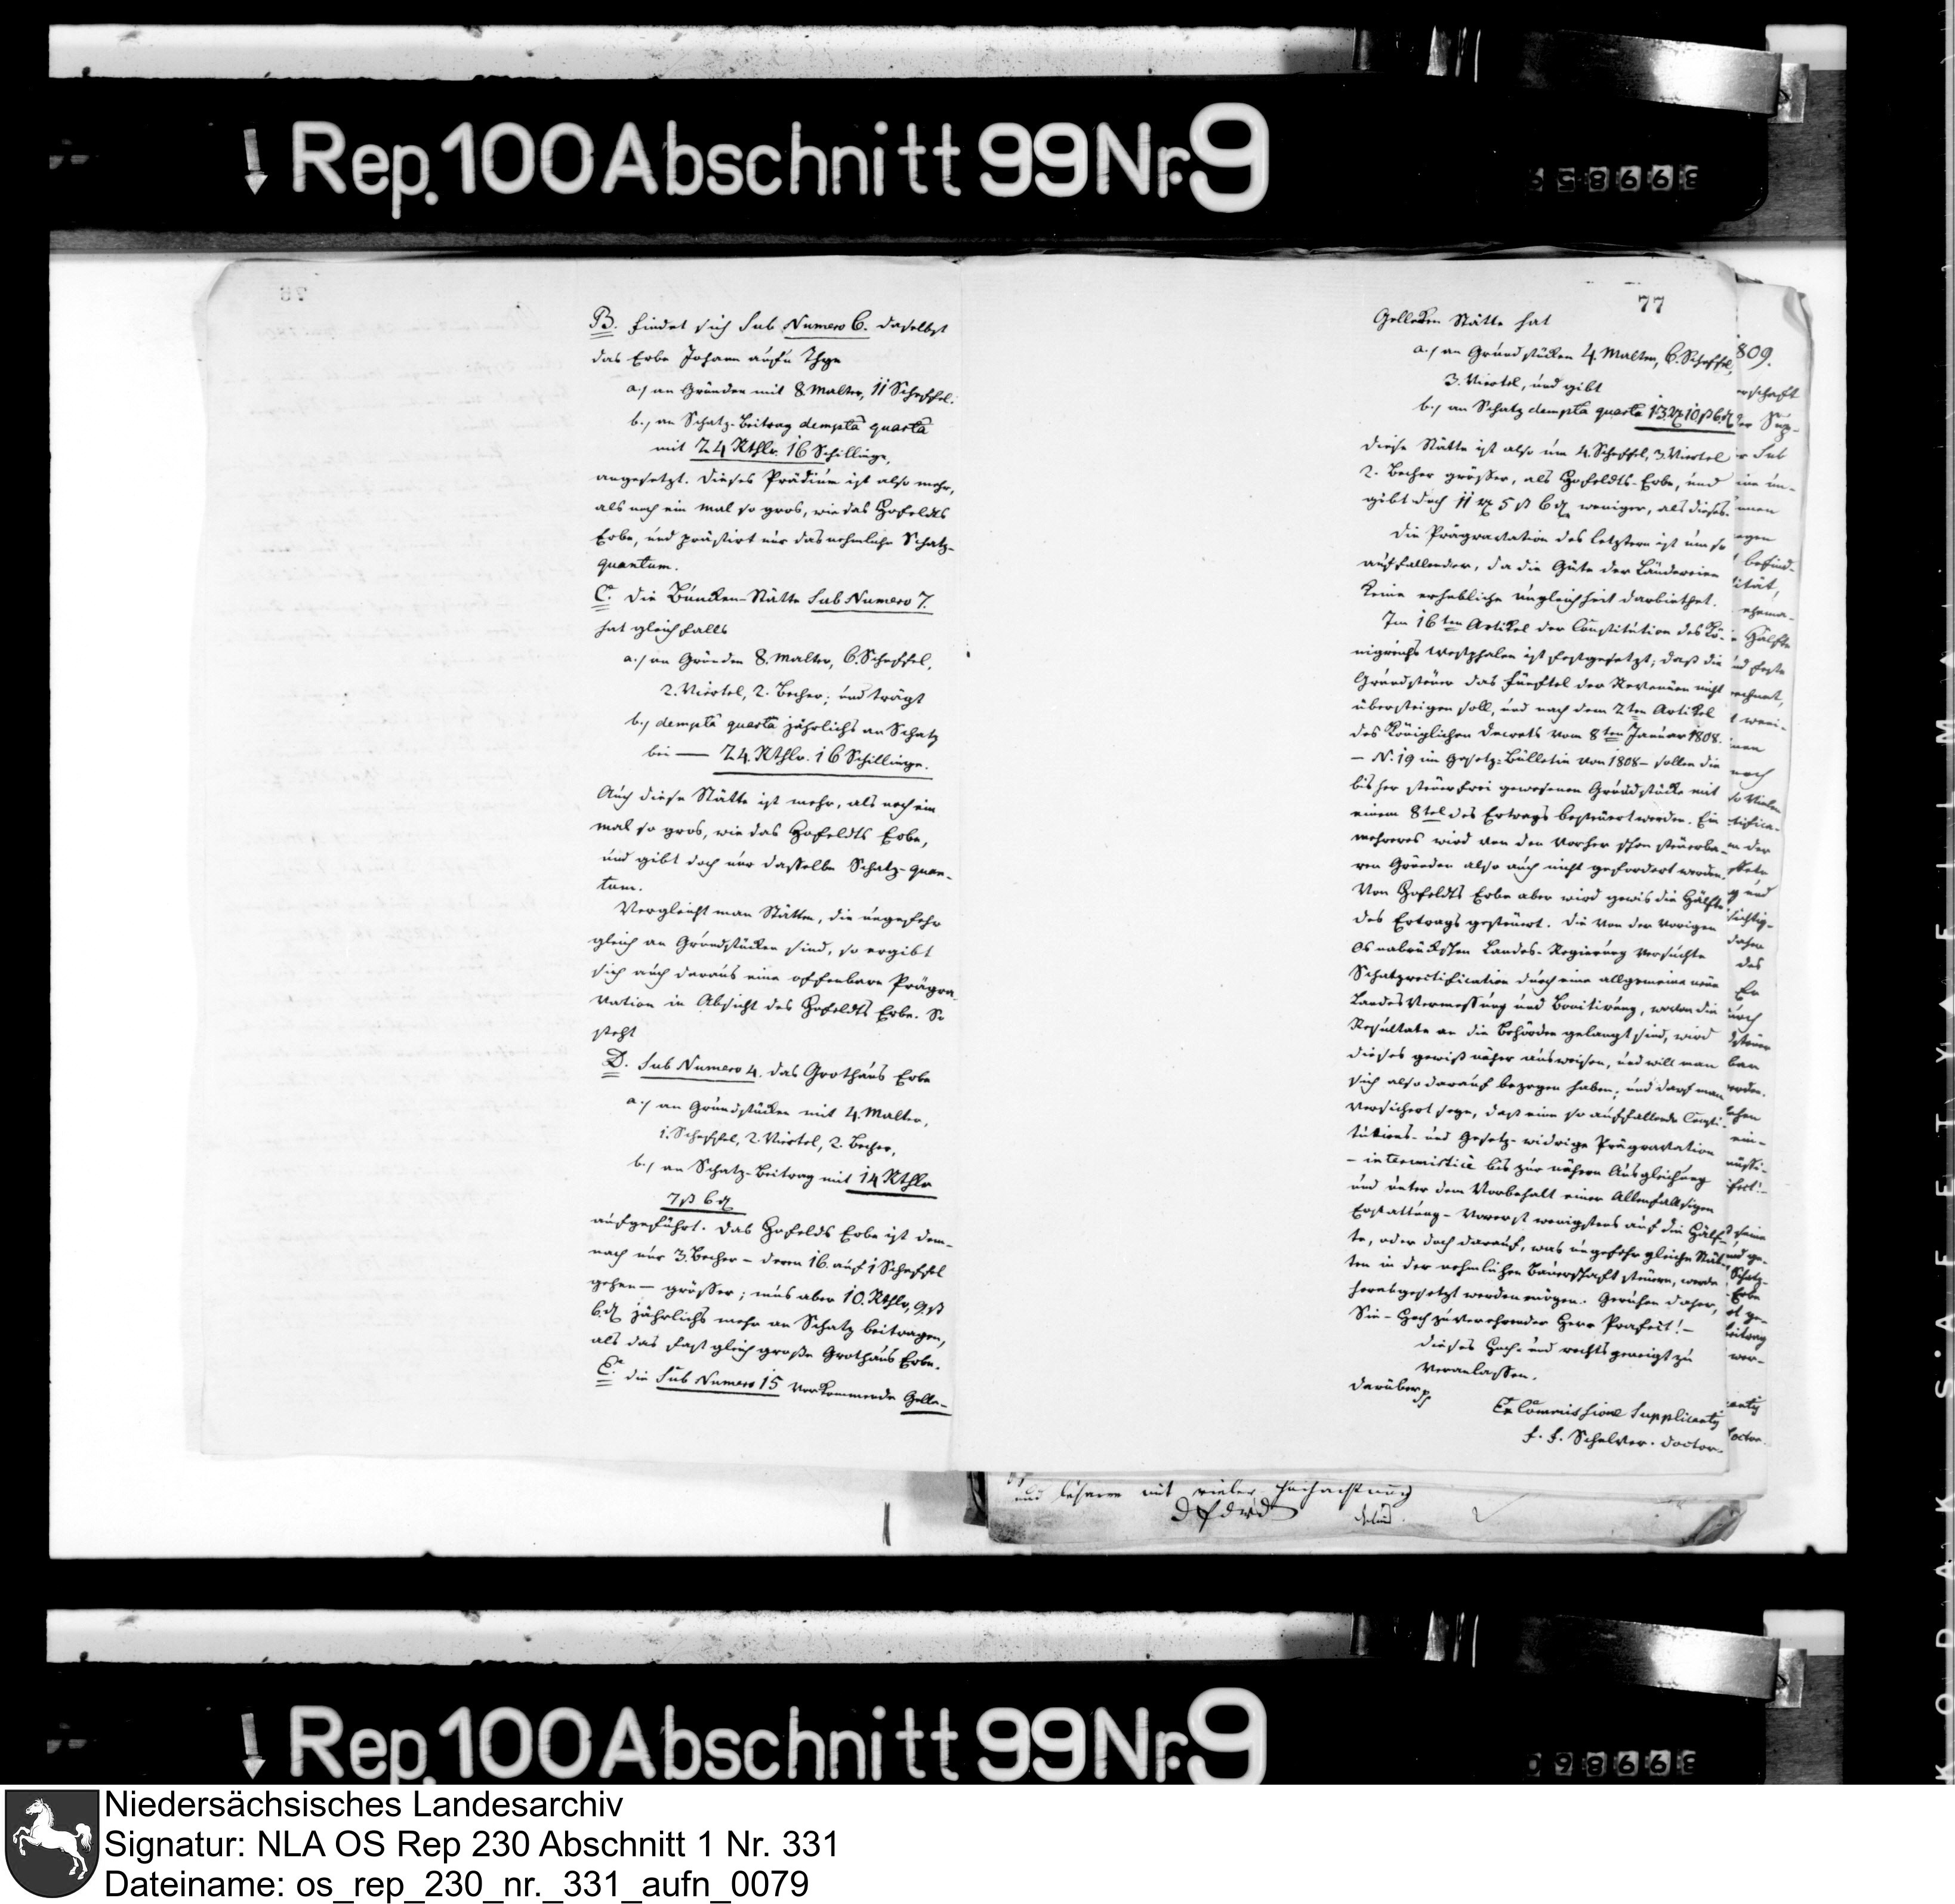 Rep. 100 Abschnitt 99 Nr. 9
77
B. findet sich sub Numero 6. daselbst
das Erbe Johann aufn Thye
a./ an Gründen mit 8 Malter, 11 Scheffel.
b., an Schatz-Beitrag demptâ quartâ
mit 24 Rthlr. 16 Schillinge,
angesetzt. Dieses Prädium ist also mehr,
als noch ein mal so gros, wie das Hofeldts
Erbe, und prästirt nur das nehmliche Schatz-
quantum.
C. die Bäncken-Stätte sub Numero 7.
hat gleichfalls
a./ an Gründen 8. Malter, 6. Scheffel,
2. Viertel, 2. Becher; und trägt
b., demptâ quartâ jährlichs an Schatz
bei — 24. Rthlr. 16 Schillinge.
Auch diese Stätte ist mehr, als noch ein
mal so gros, wie das Hofeldts Erbe,
und gibt doch nur dasselbe Schatz-quan-
tum.
Vergleicht man Stätten, die ungefehr
gleich an Grundstücken sind, so ergibt
sich auch daraus eine offenbare Prägra-
vation in Absicht des Hofeldts Erbe. So
steht
D. sub Numero 4. das Grothaus Erbe
a./ an Grundstücken mit 4. Malter,
1. Scheffel, 2. Viertel, 2. Becher,
b./ an Schatz-Beitrag mit 14 Rthlr
7 ß 6 d
aufgeführt. Das Hofelds Erbe ist dem-
nach nur 3. Becher – deren 16. auf 1 Scheffel
gehen — grösser; mus aber 10. Rthlr, 9 ß
6 d jährlichs mehr an Schatz beitragen,
als das fast gleich grosse Grothaus Erbe.
E. die sub Numero 15 vorkommende Gelle-
Gellecken Stätte hat
a./ an Grundstücken 4. Malter, 6. Scheffel,
3. Viertel, und gibt
b., an Schatz demptâ quartâ 13 rt 10 ß 6 d
diese Stätte ist also um 4. Scheffel, 3 Viertel
2. Becher grösser, als Hofeldts-Erbe, und
gibt doch 11 rt 5 ß 6 d weniger, als dieses.
Die Prägravation des letztern ist um so
auffallender, da die Güte der Ländereien
keine erhebliche Ungleichheit darbiethet.
Im 16ten Artikel der Constitution des Kö-
nigreichs Westphalen ist festgesetzt; daß die
Grundsteuer das fünftel der Revenüen nicht
übersteigen soll, und nach dem 2ten Artikel
des Königlichen Decrets vom 8ten Januar 1808.
– N. 19 im Gesetz-Bülletin von 1808 – sollen die
bisher steuerfrei gewesenen Grundstücke mit
einem 8tel des Ertrags besteuert werden. Ein
mehreres wird von den vorher schon steuerba-
ren Gründen also auch nicht gefordert werden.
Von Hofeldts Erbe aber wird gewis die Hälfte
des Ertrags gesteuert. Die von der vorigen
Osnabrückschen Landes-Regierung versuchte
Schatzrectification durch eine allgemeine neue
Landes Vermessung und Bonitirung, wovon die
Resultate an die Behörden gelangt sind, wird
dieses gewiß näher ausweisen, und will man
sich also darauf bezogen haben; und darf man
versichert seyn, daß eine so auffallende Consti-
tutions- und Gesetz-widrige Prägravation
– interimisticè bis zur nähern Ausgleichung
und unter dem Vorbehalt einer allenfallsigen
Erstattung – vorerst wenigstens auf die Hälf-
te, oder doch darauf, was ungefehr gleiche Stät-
ten in der nehmlichen Bauerschaft steuern, werde
herabgesetzt werden mögen. Geruhen daher,
Sie – Hochzuverehrender Herr Präfect! –
dieses Hoch- und rechtsgeneigt zu
veranlassen.
Darüber
Ex Commissione Supplicantis
F. F. Schelver. Doctor.
809.
und beharre mit vieler Hochachtung
Rep. 100 Abschnitt 99 Nr. 9
KODAK SAFETY FILM
Niedersächsisches Landesarchiv
Signatur: NLA OS Rep 230 Abschnitt 1 Nr. 331
Dateiname: os_rep_230_nr._331_aufn_0079